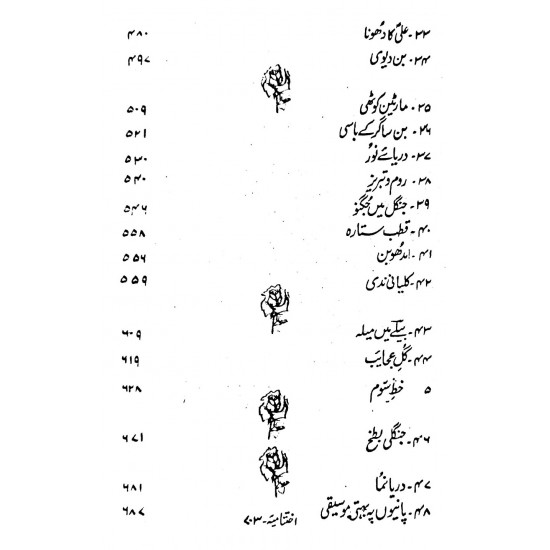 ۳۳۔ علیؑ کا دھونا ۴۸۰
۳۴۔ بن دیوی ۴۹۷
۳۵۔ مارٹین کوٹھی ۵۰۹
۳۶۔ بن ساگر کے باسی ۵۲۱
۳۷۔ دریائے نور ۵۳۰
۳۸۔ روم و تبریز ۵۴۰
۳۹۔ جنگل میں جگنو ۵۴۶
۴۰۔ قطب ستارہ ۵۵۸
۴۱۔ مدھوبن ۵۵۶
۴۲۔ کلیانی ندی ۵۵۹
۴۳۔ بیلے میں میلہ ۶۰۹
۴۴۔ گلِ عجایب ۶۱۹
۵ خطِ سوم ۶۲۸
۴۶۔ جنگلی بطخ ۶۷۱
۴۷۔ دریا نما ۶۸۱
۴۸۔ پانیوں پہ بہتی موسیقی ۶۸۷
اختتامیہ۔ ۷۰۳